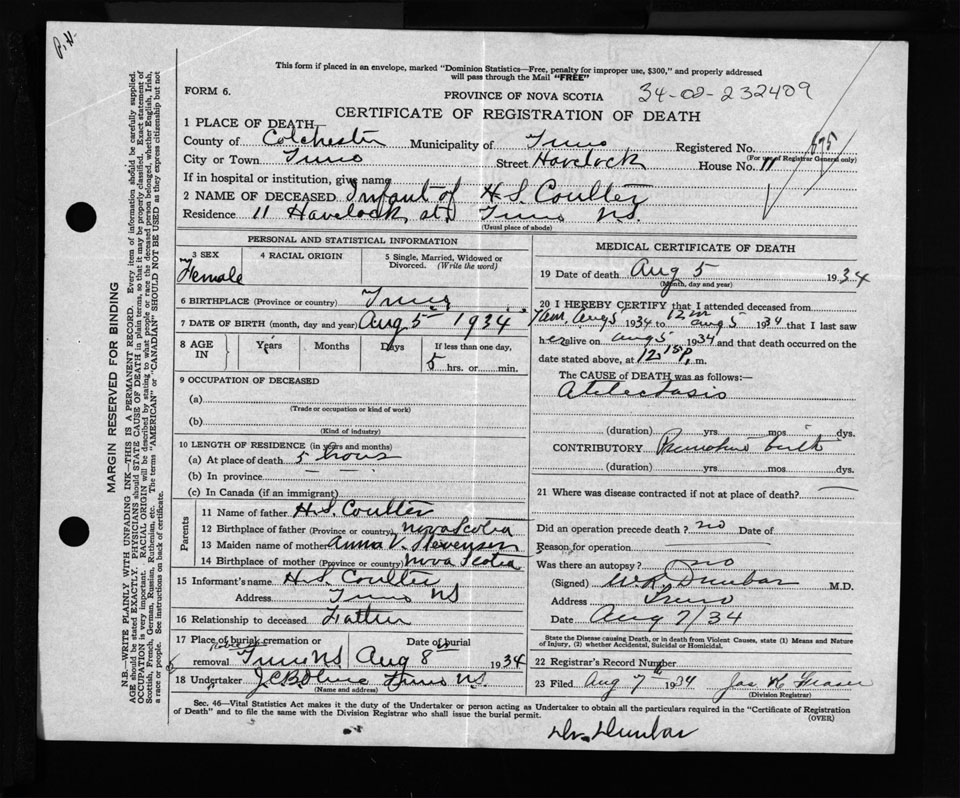 P.H.
This form if placed in an envelope, marked "Dominion Statistics—Free, penalty for improper use, $300," and properly addressed
will pass through the Mail "FREE"
FORM 6.
PROVINCE OF NOVA SCOTIA 34-02-232409
CERTIFICATE OF REGISTRATION OF DEATH
1 PLACE OF DEATH—
County of Colchester Municipality of Truro Registered No. 675
(For use of Registrar General only)
City or Town Truro Street Havelock House No. 11
If in hospital or institution, give name
2 NAME OF DECEASED Infant of H S. Coulter
Residence 11 Havelock st Truro N.S.
(Usual place of abode)
PERSONAL AND STATISTICAL INFORMATION
3 SEX 4 RACIAL ORIGIN 5 Single, Married, Widowed or
Divorced. (Write the word)
Female
6 BIRTHPLACE (Province or country) Truro
7 DATE OF BIRTH (month, day and year) Aug 5 1934
8 AGE IN Years Months Days If less than one day,
5 hrs. or min.
9 OCCUPATION OF DECEASED
(a)
(Trade or occupation or kind of work)
(b)
(Kind of industry)
10 LENGTH OF RESIDENCE (in years and months)
(a) At place of death 5 hours
(b) In province
(c) In Canada (if an immigrant)
Parents
11 Name of father H.S. Coulter
12 Birthplace of father (Province or country) Nova Scotia
13 Maiden name of mother Anna V. Stevenson
14 Birthplace of mother (Province or country) Nova Scotia
15 Informant's name H.S. Coulter
Address Truro NS
16 Relationship to deceased Father
17 Place of burial, cremation or Date of burial
removal Truro NS Aug 8 1934
18 Undertaker Truro NS
(Name and address)
MEDICAL CERTIFICATE OF DEATH
19 Date of death Aug 5 1934
(Month, day and year)
20 I HEREBY CERTIFY that I attended deceased from
7am Aug 5 1934 to 12m Aug 5 1934 that I last saw
her alive on Aug 5 1934 and that death occurred on the
date stated above, at 12 15 P. m.
The CAUSE of DEATH was as follows:—
Atelectasis
(duration) yrs mos dys.
CONTRIBUTORY Premature birth
(duration) yrs mos dys.
21 Where was disease contracted if not at place of death?
Did an operation precede death? no Date of
Reason for operation
Was there an autopsy? no
(Signed) W.R. Dunbar M.D.
Address Truro
Date Aug 7/34
State the Disease causing Death, or in death from Violent Causes, state (1) Means and Nature
of Injury, (2) whether Accidental, Suicidal or Homicidal.
22 Registrar's Record Number
23 Filed Aug 7 1934 Jas. W Fraser
(Division Registrar)
Sec. 46—Vital Statistics Act makes it the duty of the Undertaker or person acting as Undertaker to obtain all the particulars required in the "Certificate of Registration
of Death" and to file the same with the Division Registrar who shall issue the burial permit.
(OVER)
Dr. Dunbar
MARGIN RESERVED FOR BINDING
N.B.—WRITE PLAINLY WITH UNFADING INK—THIS IS A PERMANENT RECORD. Every item of information should be carefully supplied.
AGE should be stated EXACTLY. PHYSICIANS should STATE CAUSE OF DEATH in plain terms, so that it may be properly classified. Exact statement of
OCCUPATION is very important. RACIAL ORIGIN will be described by stating to what people or race the deceased person belonged, whether English, Irish,
Scottish, French, German, Russian, Ruthenian, etc. The terms "AMERICAN" or "CANADIAN" SHOULD NOT BE USED as they express citizenship but not
a race or people. See instructions on back of certificate.